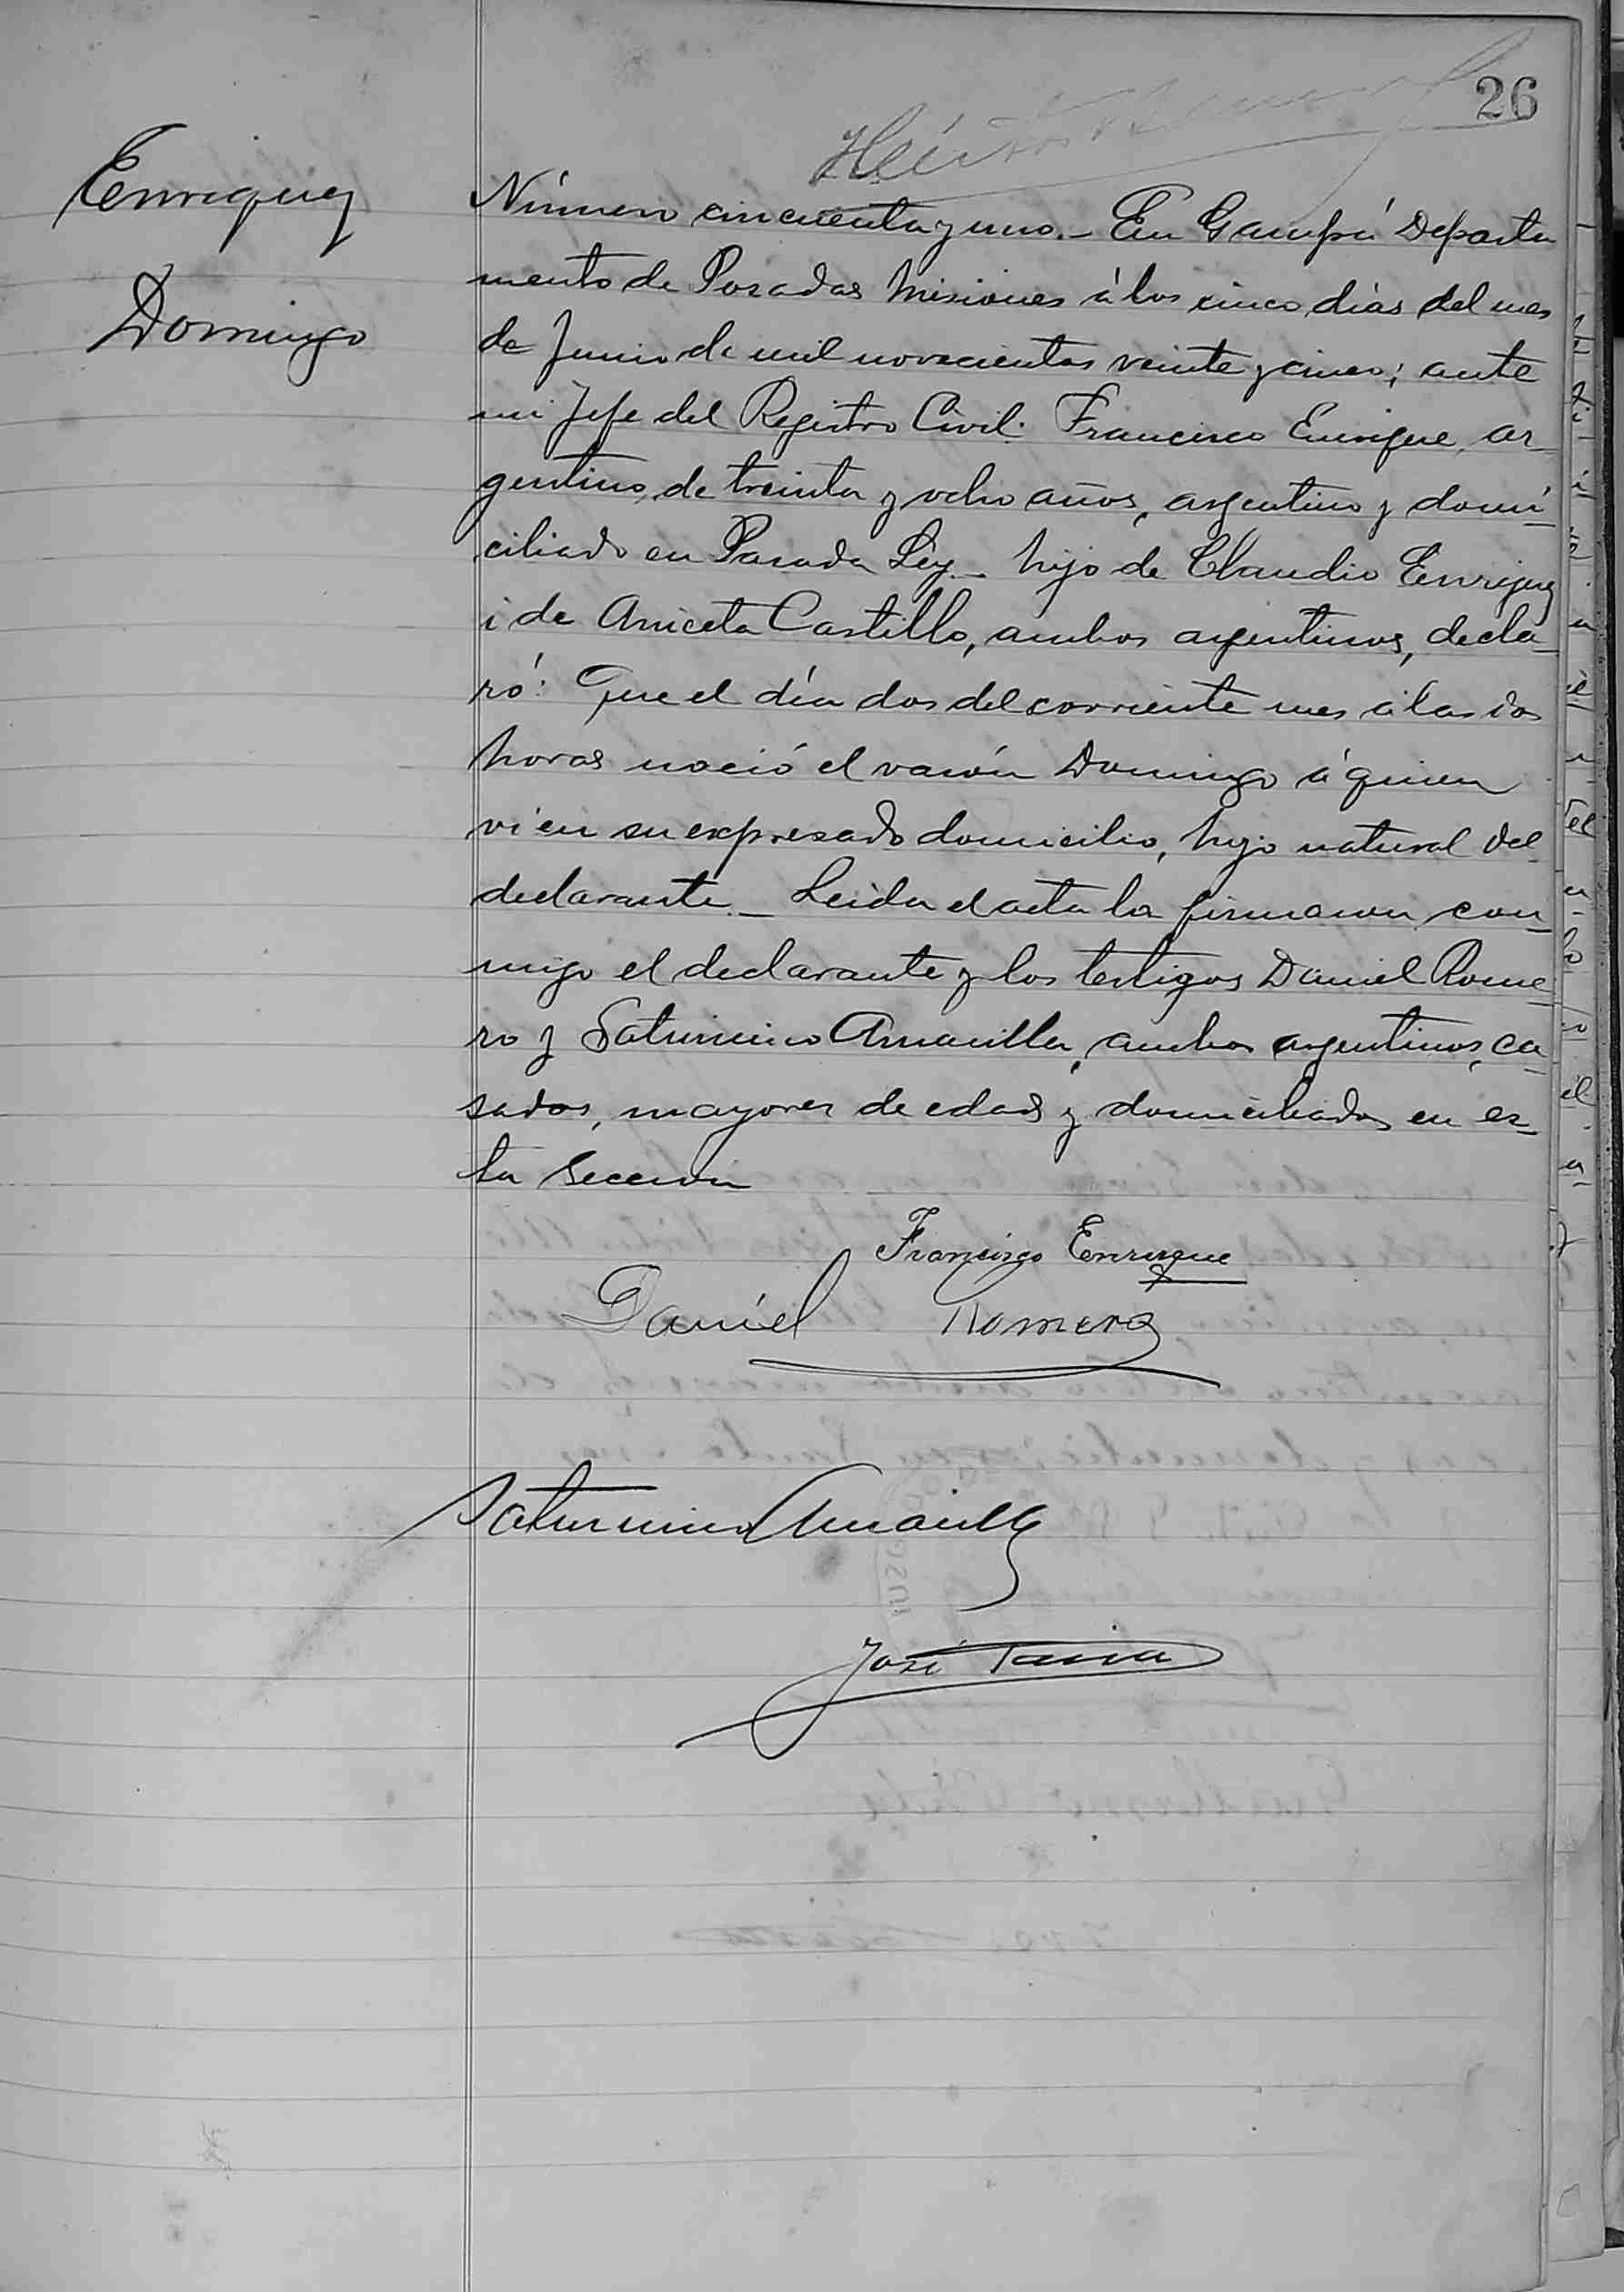 26
Enriquez
Domingo
Número cincuenta y uno.- En Garupá Departa
mento de Posadas Misiones á los cinco días del mes
de Junio de mil novecientos veinte y cinco; ante
mi Jefe del Registro Civil. Francisco Enrique, ar_
gentino, de treinta y ocho años, argentino y domi_
ciliado en Parada Ley_ hijo de Claudio Enriquez
i de Aniceta Castillo, ambos argentinos, decla_
ró: Que el día dos del corriente mes á las dos
horas nació el varón Domingo á quien
vi en su expresado domicilio, hijo natural del
declarante._ Leida el acta la firmaron con_
migo el declarante y los testigos Daniel Rome_
ro y Saturnino Amarilla, ambos argentinos, ca_
sados, mayores de edad y domiciliados en es_
ta Sección
Francisco Enrique
Daniel Romero
Saturnino Amarilla
José